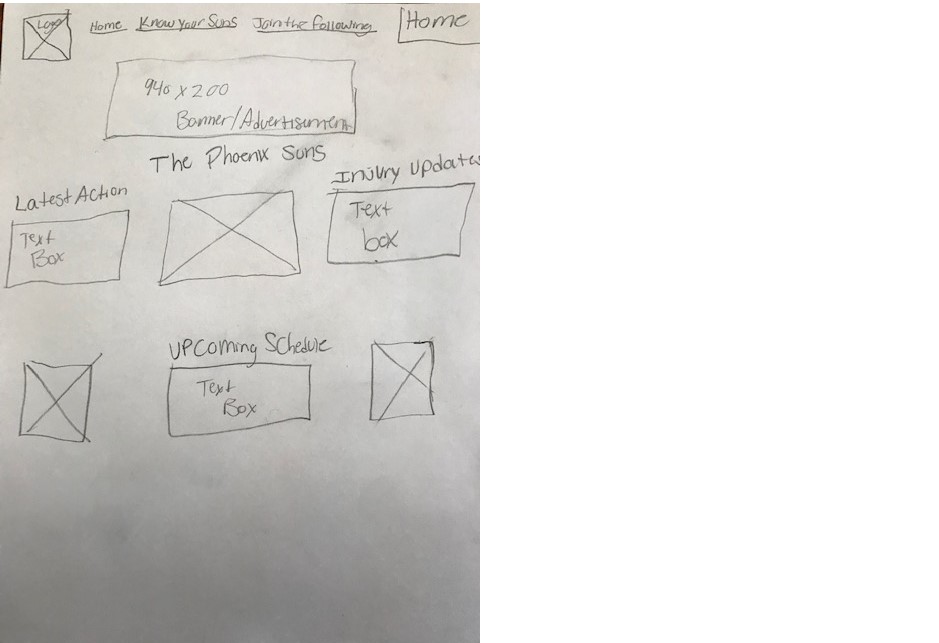 Logo Home Know Your Suns Join the Following Home
940 x 200
Banner/Advertisement
The Phoenix Suns
Injury Updates
Latest Action
Text
box
Text
Box
Upcoming Schedule
Text
Box